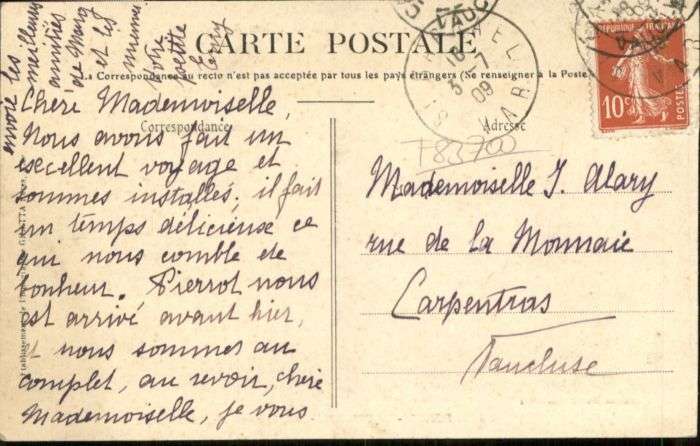 CARTE POSTALE
La Correspondance au recto n'est pas acceptée par tous les pays étrangers (Se renseigner à la Poste)
Correspondance
Adresse
Chère Mademoiselle,
Nous avons fait un
excellent voyage et
sommes installés. il fait
un temps délicieuse ce
qui nous comble de
bonheur. Pierrot nous
est arrivé avant hier,
et nous sommes au
complet, au revoir, chère
Mademoiselle, je vous
envoie les
meilleures
amitiés
de
et les
miennes
votre
petite
Mademoiselle J. Alary
rue de la Monnaie
Carpentras
Vaucluse
783700
VAR
09
10c